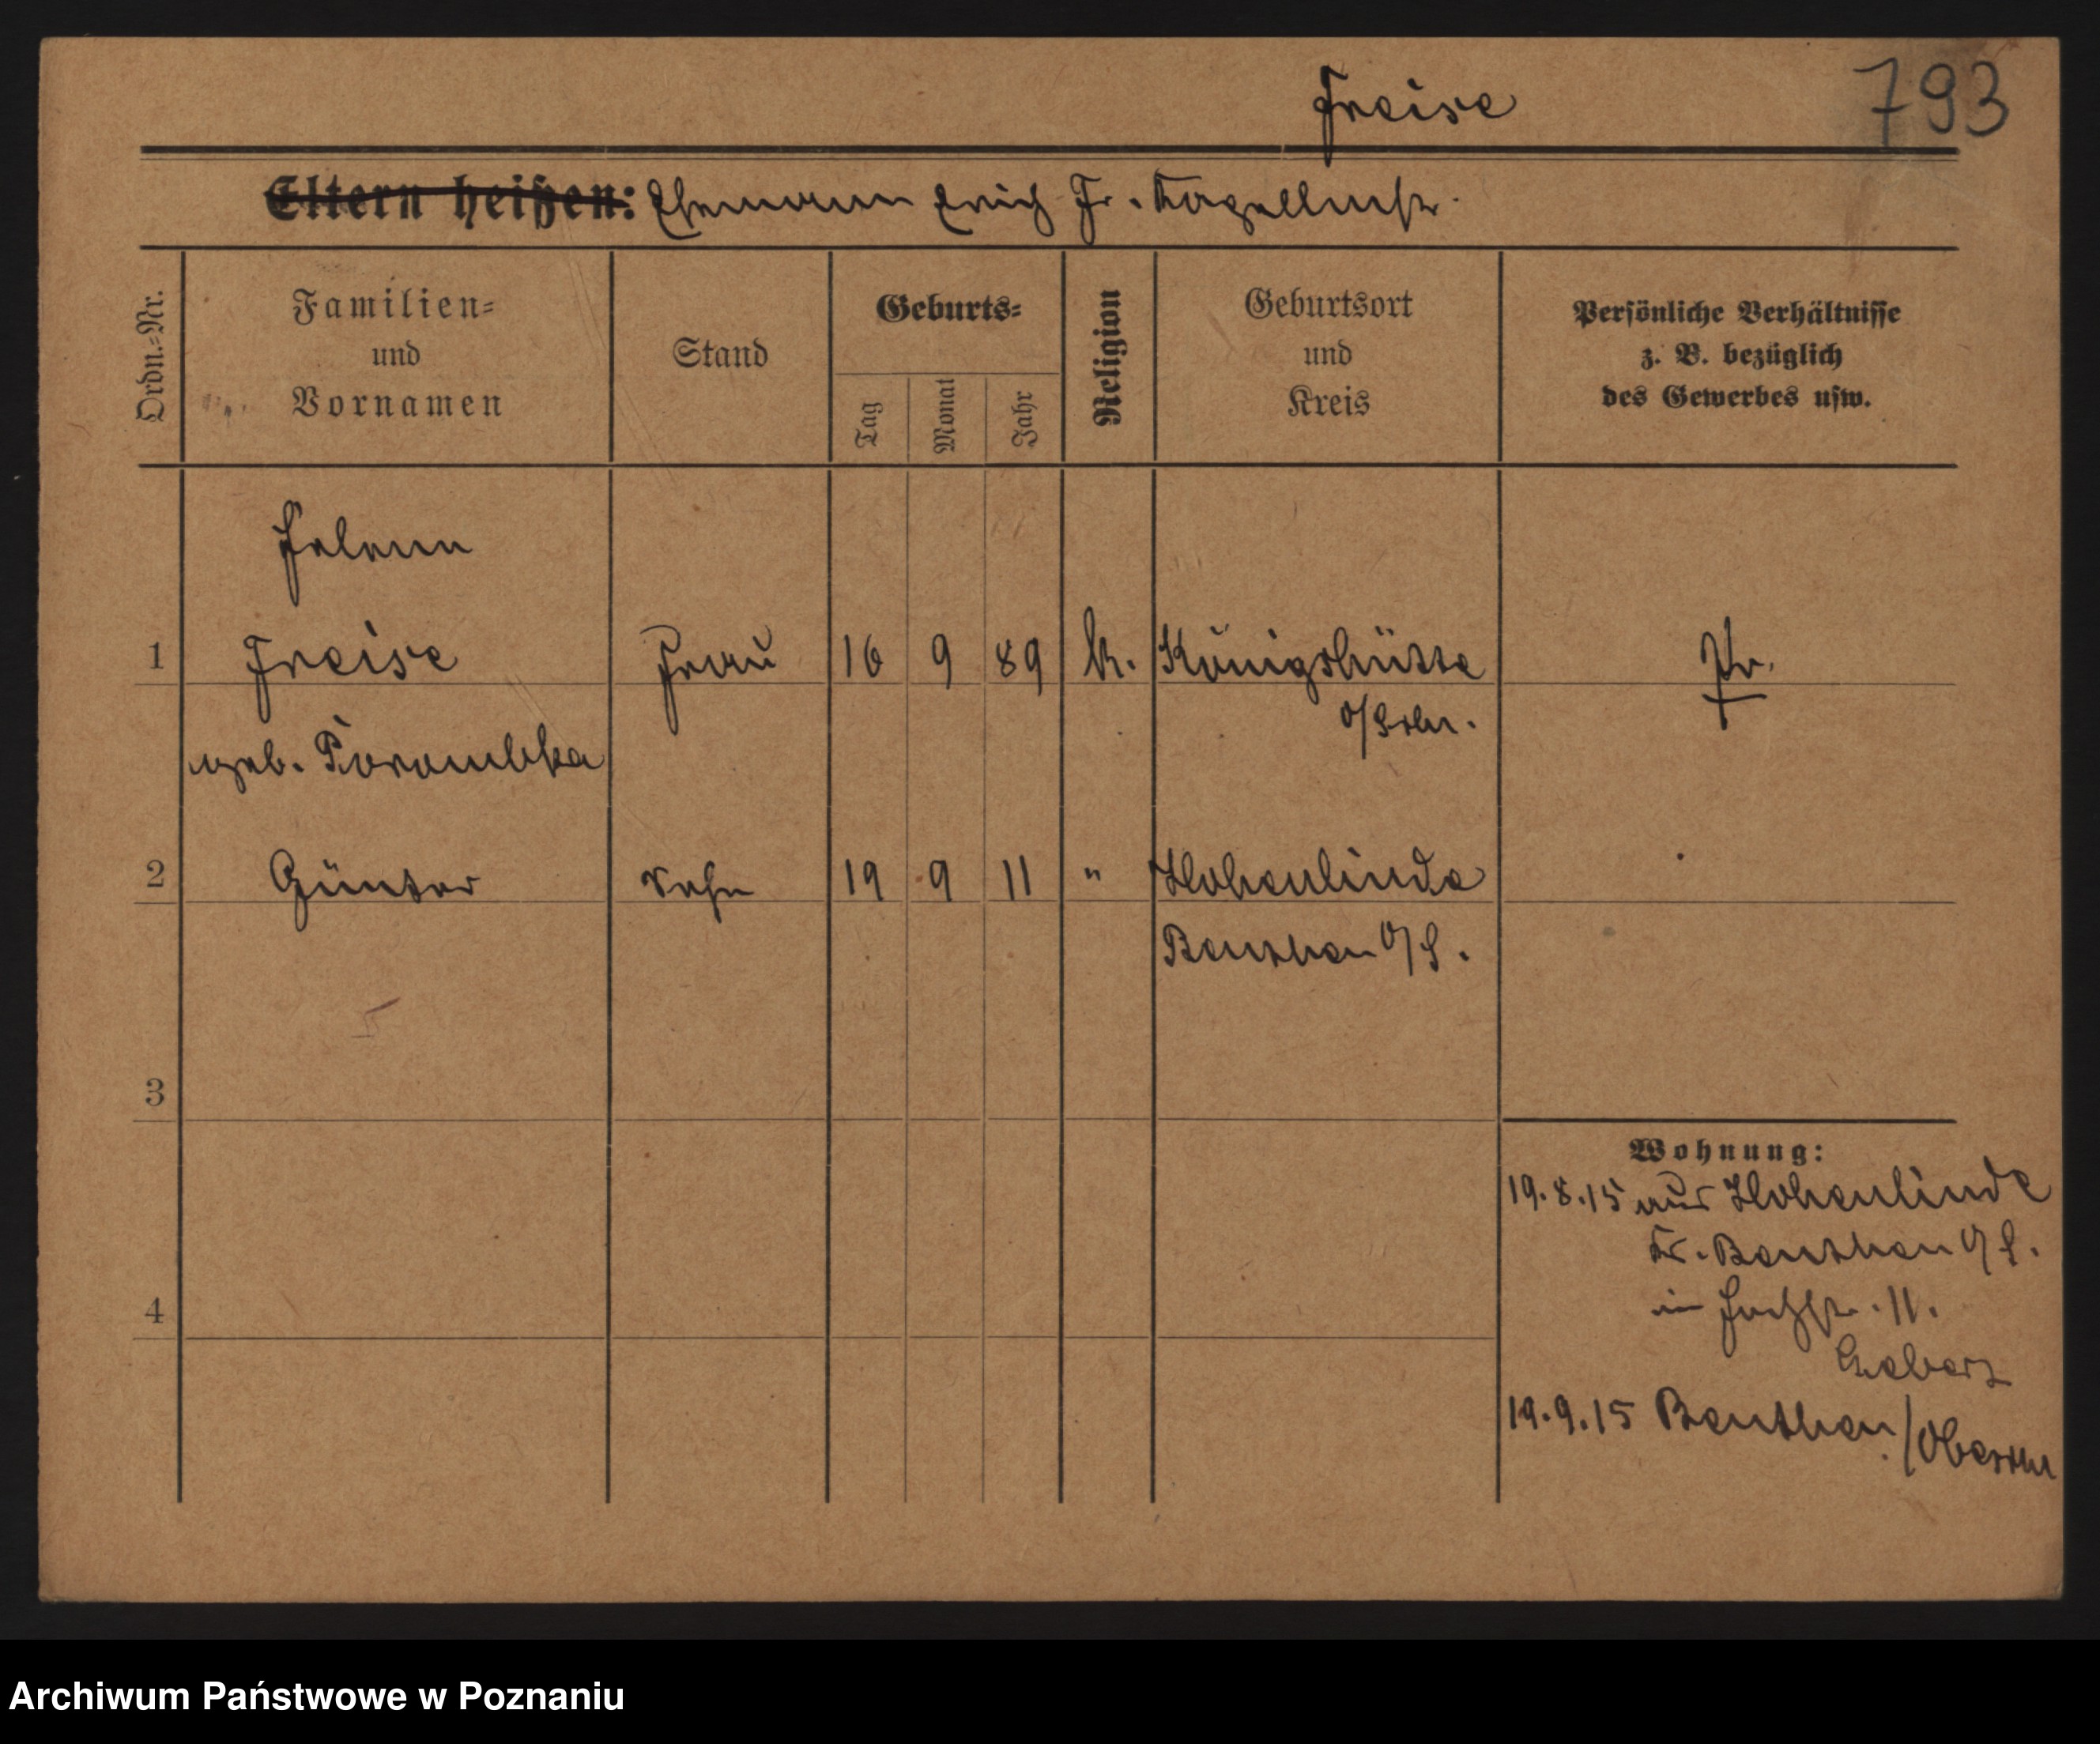 Freise
793
Eltern heißen: Ehemann Erich Fr. Kapellmstr.
Ordn.=Nr.
Familien=
und
Vornamen
Stand
Geburts=
Tag
Monat
Jahr
Religion
Geburtsort
und
Kreis
Persönliche Verhältnisse
z. B. bezüglich
des Gewerbes usw.
Helene
1 Freise Frau 16 9 89 k. Königshütte Pr.
O/Schl.
geb. Porombka
2 Günter Sohn 19 9 11 " Hohenlinde
Beuthen O/S.
3
4
Wohnung:
19.8.15 aus Hohenlinde
Kr. Beuthen O/S.
in 11.
19.9.15 Beuthen/Oberschl
Archiwum Państwowe w Poznaniu